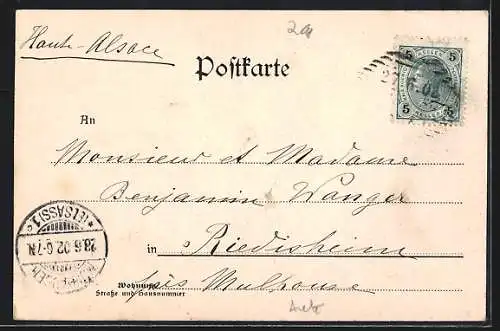 2a
Haute-Alsace
Postkarte
5 HELLER 5
5 HELLER 5
An
Monsieur et Madame
Benjamin Wanger
in Riedisheim
Wohnung
Straße und Hausnummer
près Mulhouse
(ELSASS) 1
23.6.02.6-7N.